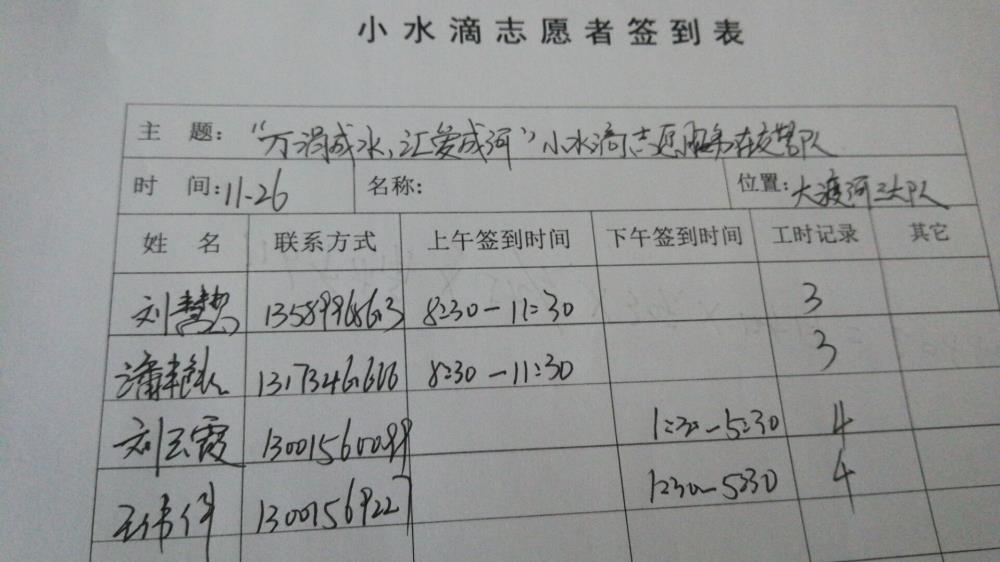 小水滴志愿者签到表
主 题: “万涓成水,汇爱成河”小水滴志愿服务在交警队
时 间: 11.26 名称: 位置: 大渡河三大队
姓 名 联系方式 上午签到时间 下午签到时间 工时记录 其它
刘慧 8:30-11:30 3
潘艳 8:30-11:30 3
刘云霞 13001560099 1:30-5:30 4
王伟 13001569227 1:30-5:30 4